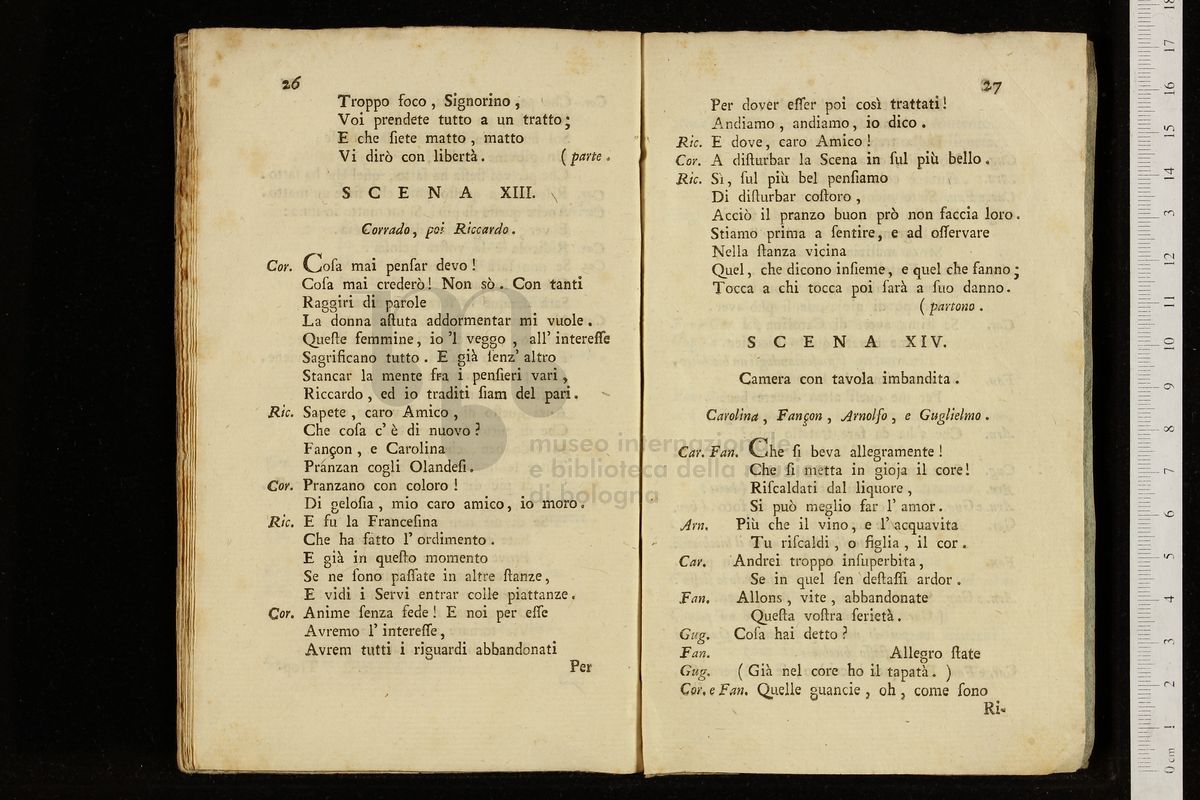 26
Troppo foco , Signorino ,
Voi prendete tutto a un tratto ;
E che ſiete matto , matto
Vi dirò con libertà . ( parte .
SCENA XIII.
Corrado , poi Riccardo .
Cor. Coſa mai penſar devo !
Coſa mai crederò ! Non sò . Con tanti
Raggiri di parole
La donna aſtuta addormentar mi vuole .
Queſte femmine , io 'l veggo , all' intereſſe
Sagrificano tutto . E già ſenz' altro
Stancar la mente fra i penſieri vari ,
Riccardo , ed io traditi ſiam del pari .
Ric. Sapete , caro Amico ,
Che coſa c' è di nuovo ?
Fançon , e Carolina
Pranzan cogli Olandeſi .
Cor. Pranzano con coloro !
Di geloſia , mio caro amico , io moro .
Ric. E fu la Franceſina
Che ha fatto l' ordimento .
E già in queſto momento
Se ne ſono paſſate in altre ſtanze ,
E vidi i Servi entrar colle piattanze .
Cor. Anime ſenza fede ! E noi per eſſe
Avremo l' intereſſe ,
Avrem tutti i riguardi abbandonati
Per
27
Per dover eſſer poi così trattati !
Andiamo , andiamo , io dico .
Ric. E dove , caro Amico !
Cor. A diſturbar la Scena in ſul più bello .
Ric. Sì , ſul più bel penſiamo
Di diſturbar coſtoro ,
Acciò il pranzo buon prò non faccia loro .
Stiamo prima a ſentire , e ad oſſervare
Nella ſtanza vicina
Quel , che dicono inſieme , e quel che fanno ;
Tocca a chi tocca poi ſarà a ſuo danno .
( partono .
SCENA XIV.
Camera con tavola imbandita .
Carolina , Fançon , Arnolfo , e Guglielmo .
Car. Fan. Che ſi beva allegramente !
Che ſi metta in gioja il core !
Riſcaldati dal liquore ,
Si può meglio far l' amor .
Arn. Più che il vino , e l' acquavita
Tu riſcaldi , o figlia , il cor .
Car. Andrei troppo inſuperbita ,
Se in quel ſen deſtaſſi ardor .
Fan. Allons , vite , abbandonate
Queſta voſtra ſerietà .
Gug. Coſa hai detto ?
Fan. Allegro ſtate
Gug. ( Già nel core ho il tapatà . )
Cor. e Fan. Quelle guancie , oh , come ſono
Ri-
museo internazionale
e biblioteca della musica
di bologna
0 cm 1 2 3 4 5 6 7 8 9 10 11 12 13 14 15 16 17 18